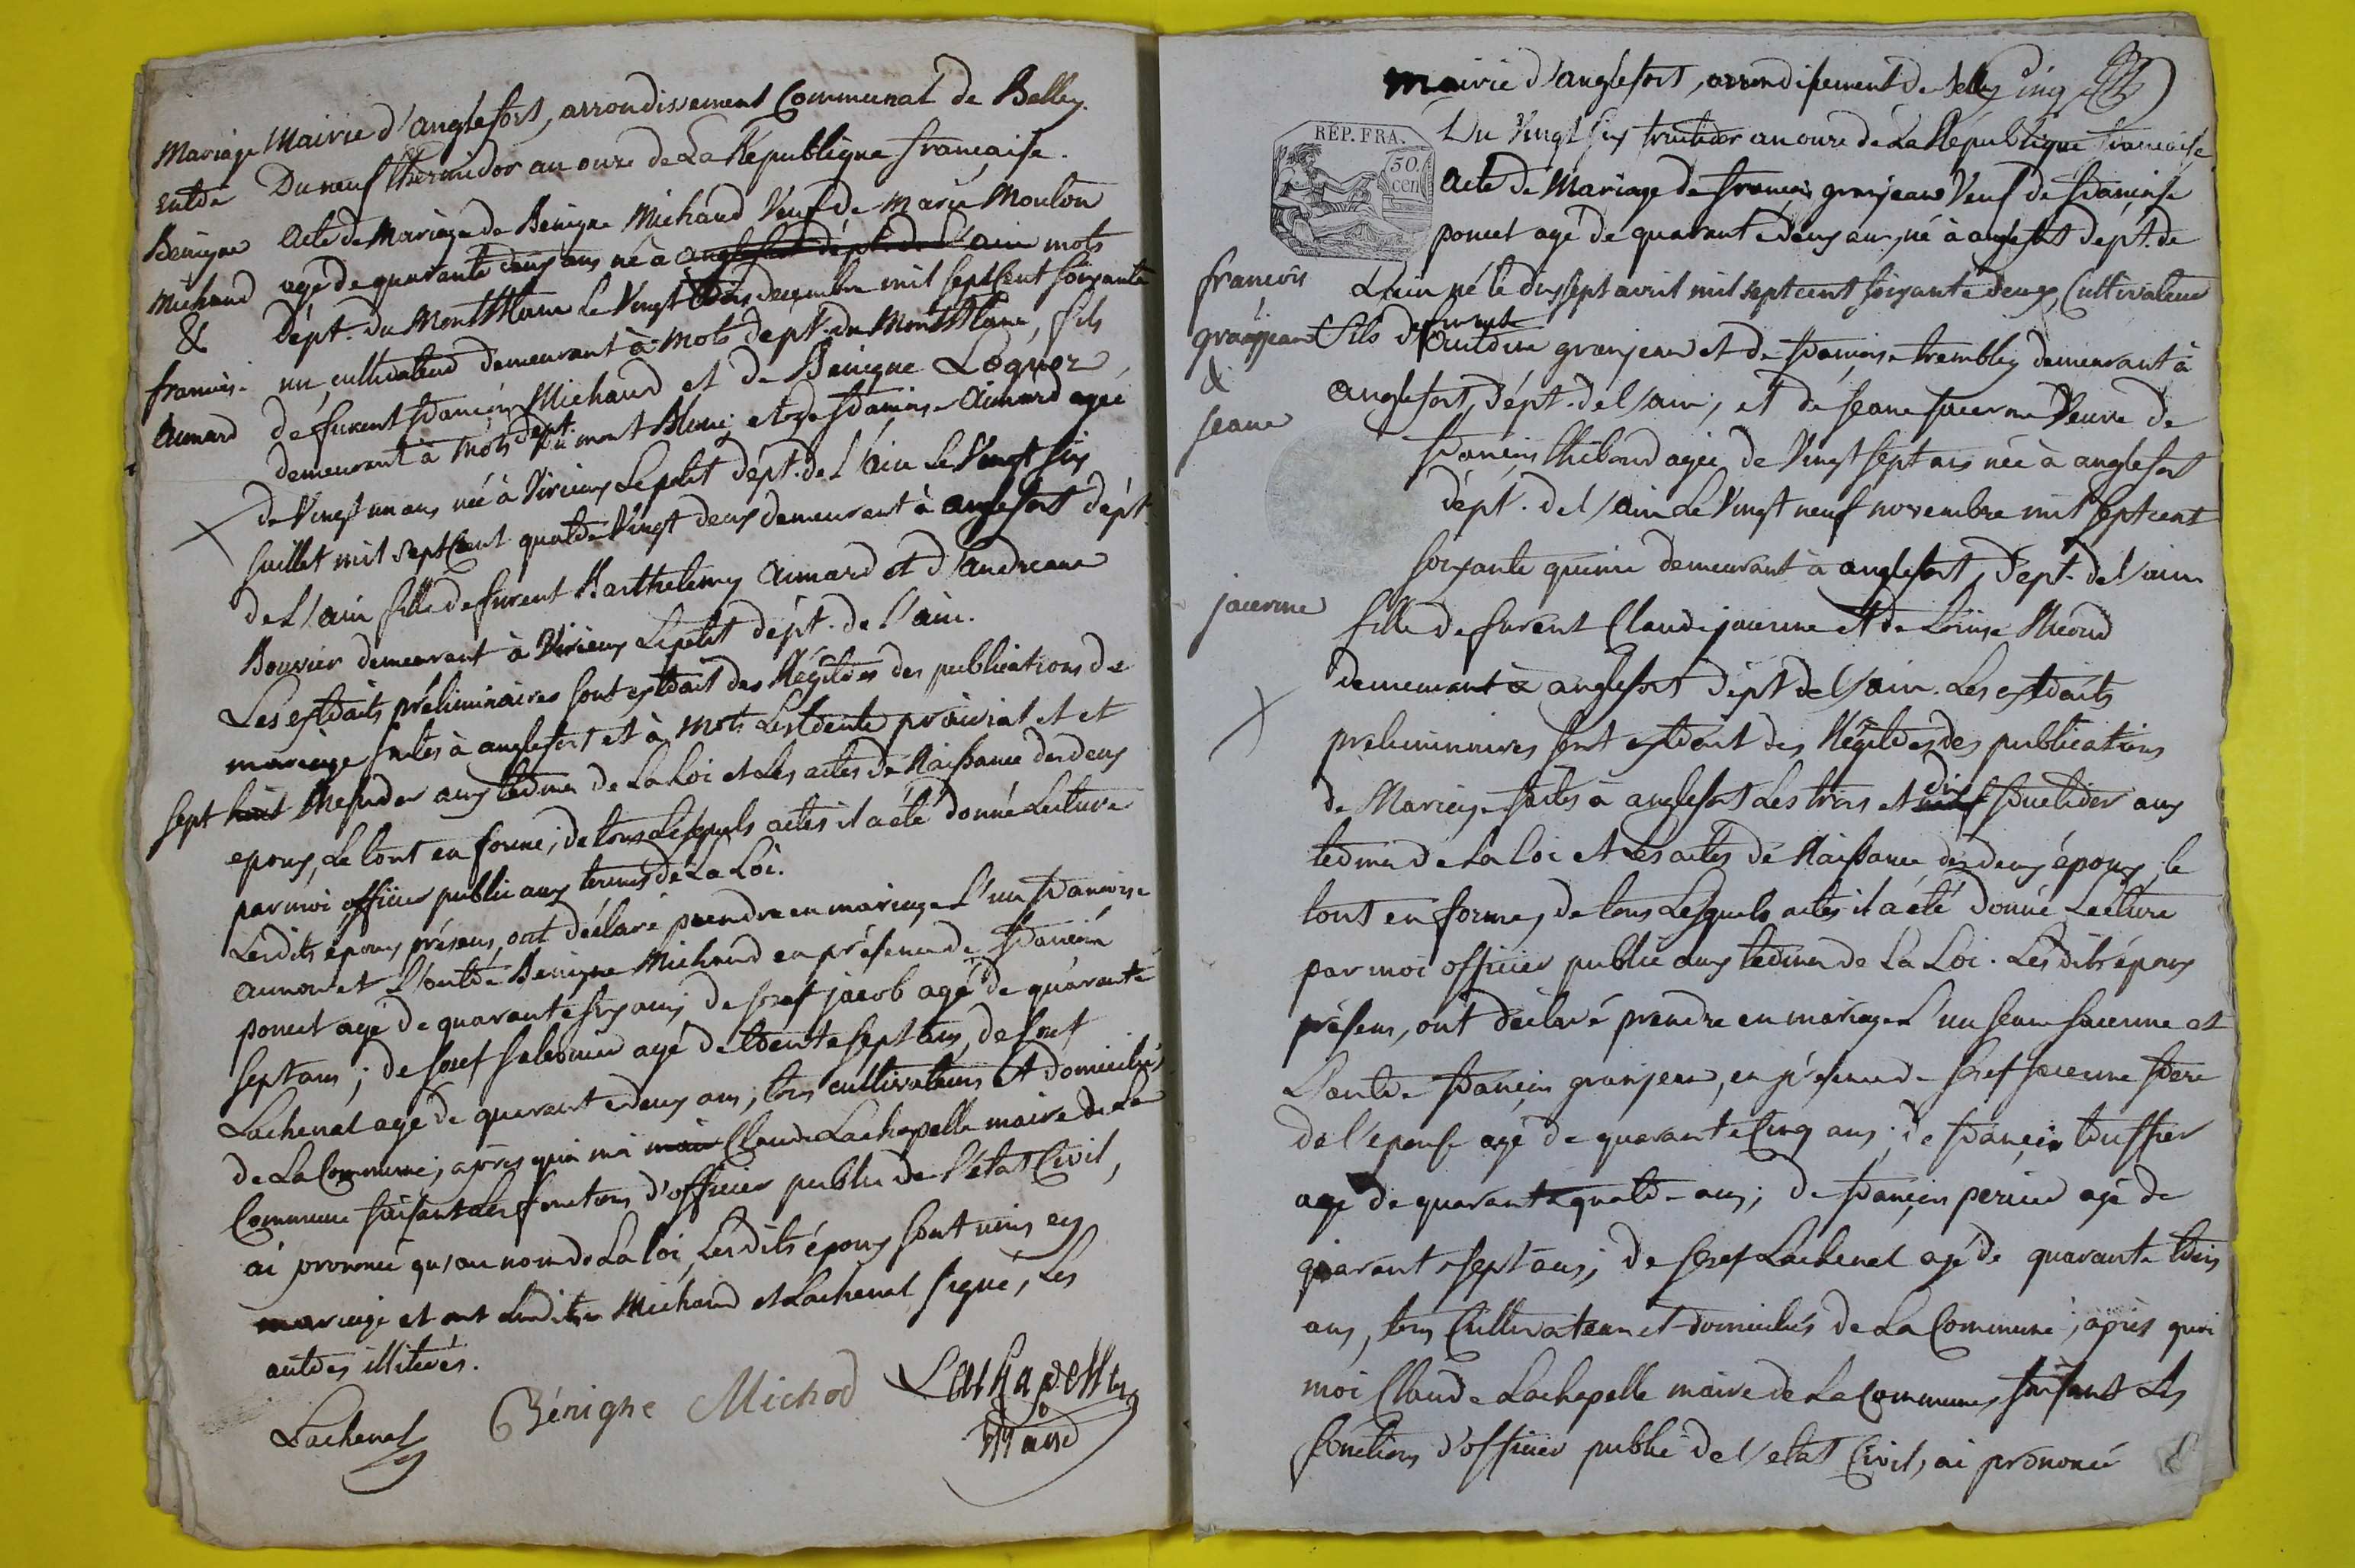 Mariage Mairie d'anglefort, arrondissement Communal de Belley.
Entre Du neuf thermidor an onze de La République francaise.
Benigne acte de Mariage de Benigne Michaud Veuf de Marie Moulon
Michaud agé de quarante deux ans né à anglefort dépt. de l'ain mots
& dépt. du MontBlanc Le Vingt trois decembre mil sept Cent soixante
francoise un, cultivateur demeurant à mots dept. du MontBlanc, fils
aimard défurent francois Michaud et de Benigne
demeurant à mots dept. du mont Blanc; et de francoise aimard agée
de Vingt un ans née à Virieux Le petit dépt. de l'ain Le Vingt six
Juillet mil sept Cent quatre Vingt deux demeurant à anglefort dépt.
de L'ain fille defurent Barthelemy aimard et d'andreane
Bouvier demeurant à Virieux Lepetit dépt. de l'ain.
Les extraits préliminaires sont extrait des Régitres des publications de
mariage faites à anglefort et à mots Les trente prairial et et
sept huit Messidor aux termes de La Loi et Les actes de Naissance des deux
epoux, Le tout en forme; de tous Lesquels actes il a été donné Lecture
par moi officier public aux termes de La Loi.
Lesdits époux présens, ont déclaré prendre en mariage L'un francoise
aimard et L'autre Benigne Michaud en présence de francois
poncet agé de quarante six ans; de Josef jacob agé de quarante
sept ans; de Josef agé de trente sept ans, de Josef
Lachenal agé de quarante deux ans, tous cultivateurs et domiciliés
de La Commune; après quoi moi maire Claude Lachapelle maire de La
Commune faisant les fonctions d'officier public de l'état Civil,
ai prononcé qu'au nom de La loi, Lesdits époux sont unis en
mariage et ont Lesdits Michaud et Lachenal signé, Les
autres illiterés.
Lachenal Bénigne Michod Lachapelle
Maire
Mairie d'anglefort, arrondissement de Belley Cinq
REP. FRA.
50.
cen
Du Vingt six fructidor an onze de La République francaise
acte de Mariage de francois granjean Veuf de francoise
poncet agé de quarante deux ans, né à anglefort dept. de
francois L'ain né le dix sept avril mil sept cent soixante deux, Cultivateur
granjean fils defurent antoine granjean et de francoise trembley demeurant à
& anglefort, dépt. de l'ain; et de jeane jacerme Veuve de
jeane
francois Thibaud agée de Vingt sept ans née à anglefort
dépt. de l'ain Le Vingt neuf novembre mil sept cent
soixante quinze demeurant à anglefort, dept. de l'ain
jacerme fille defurent Claude jacerme et de Louise
demeurant à anglefort dépt de l'ain. Les extraits
préliminaires sont extrait des Régitres des publications
de Mariage faites à anglefort Les trois et neuf dix fructidor aux
termes de La Loi et Les actes de Naissance des deux époux, le
tout en forme, de tous Lesquels actes il a été donné Lecture
par moi officier public aux termes de La Loi. Les dits époux
présens, ont déclaré prendre en mariage L'un jeane jacerme et
L'autre francois granjean, en présence de Josef jacerme frere
de l'épouse agé de quarante Cinq ans; de francois truffier
agé de quarante quatre ans; de francois perier agé de
quarante sept ans; de Josef Lachenal agé de quarante trois
ans, tous Cultivateurs et domiciliés de La Commune; après quoi
moi Claude Lachapelle maire de La Commune, faisant Les
fonctions d'officier public de l'etat Civil, ai prononcé